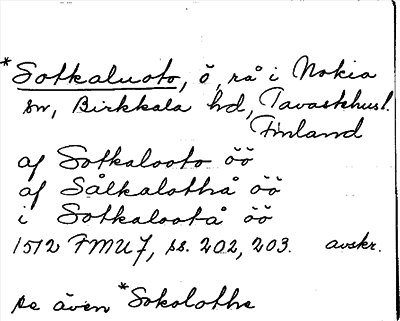 *Sotkaluoto, ö, rå i Nokia
sn, Birkkala hd, Tavastehusl.
Finland
af Sotkalooto öö
af Sålkalothå öö
i Sotkalootå öö
1512 FMU 7, ss. 202, 203. avskr.
se även *Sokolothe